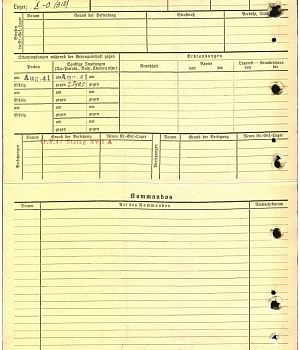 Lager:
Datum Grund der Bestrafung Strafmaß Verbüßt, Datum
Schutzimpfungen während der Gefangenschaft gegen Erkrankungen
Pocken Sonstige Impfungen
(Ty.-Paraty., Ruhr, Cholera usw.) Krankheit Revier Lazarett – Krankenhaus
von bis von bis
am Aug. 41 am Aug. 41 am
Erfolg gegen gegen
am am am
Erfolg gegen gegen
am am am
gegen gegen
Versetzungen Datum Grund der Versetzung Neues Kr.-Gef.-Lager Versetzungen Datum Grund der Versetzung Neues Kr.-Gef.-Lager
Stalag
Kommandos
Datum Art des Kommandos Rückkehrdatum